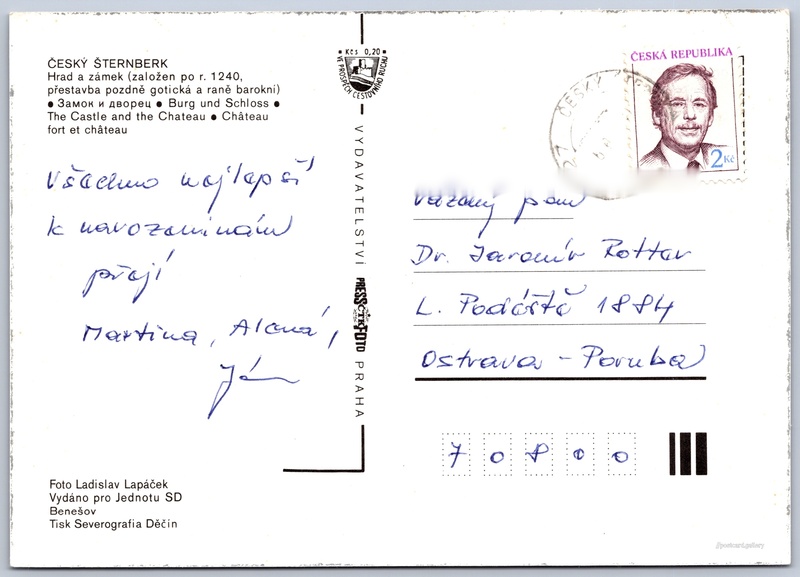 ČESKÝ ŠTERNBERK
Hrad a zámek (založen po r. 1240,
přestavba pozdně gotická a raně barokní)
● Замок и дворец ● Burg und Schloss ●
The Castle and the Chateau ● Château
fort et château
Všechno nejlepší
k narozeninám
přejí
Martina, Alena,
Foto Ladislav Lapáček
Vydáno pro Jednotu SD
Benešov
Tisk Severografia Děčín
Kčs 0,20
VE PROSPĚCH CESTOVNÍHO RUCHU
VYDAVATELSTVÍ
PRESSFOTO
PRAHA
ČESKÁ REPUBLIKA
2 Kč
ČESKÝ
Vážený pan
Dr. Jaromír Rottar
L. Podéště 1884
Ostrava - Poruba
70800
//postcard.gallery